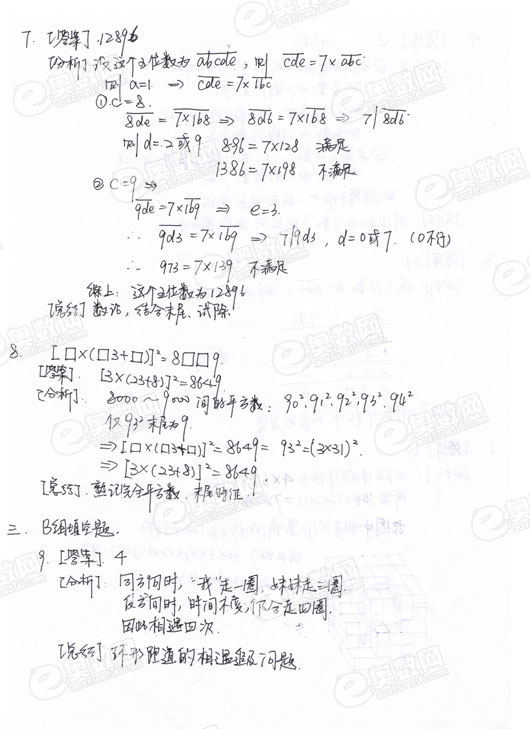 7. [答案] 12896
[分析] 设这个五位数为 abcde, 则 cde=7×abc
则 a=1 ⇒ cde=7×1bc
① C=8.
8de = 7×1b8 ⇒ 8d6=7×1b8 ⇒ 7|8d6
则 d=2或9 896=7×128 满足
1386=7×198 不满足
② C=9 ⇒
9de=7×1b9 ⇒ e=3.
∴ 9d3=7×1b9 ⇒ 7|9d3, d=0或7. (0不行)
∴ 973=7×139 不满足
综上: 这个五位数为12896.
[总结] 数论, 结合末尾、试除.
8. [□×(□3+□)]²=8□□9.
[答案]. [3×(23+8)]²=8649
[分析]. 8000～9000间的平方数: 90², 91², 92², 93², 94²
仅93²末尾为9.
⇒[□×(□3+□)]²=8649= 93²=(3×31)².
⇒ [3×(23+8)]²=8649.
[总结]. 熟记完全平方数. 末尾特征.
三. B组填空题.
9. [答案]. 4
[分析]. 同方向时, "我"走一圈, 妹妹走三圈
反方向时, 时间不变, 仍合走四圈.
因此相遇四次.
[总结] 环形跑道的相遇追及问题.
e奥数网